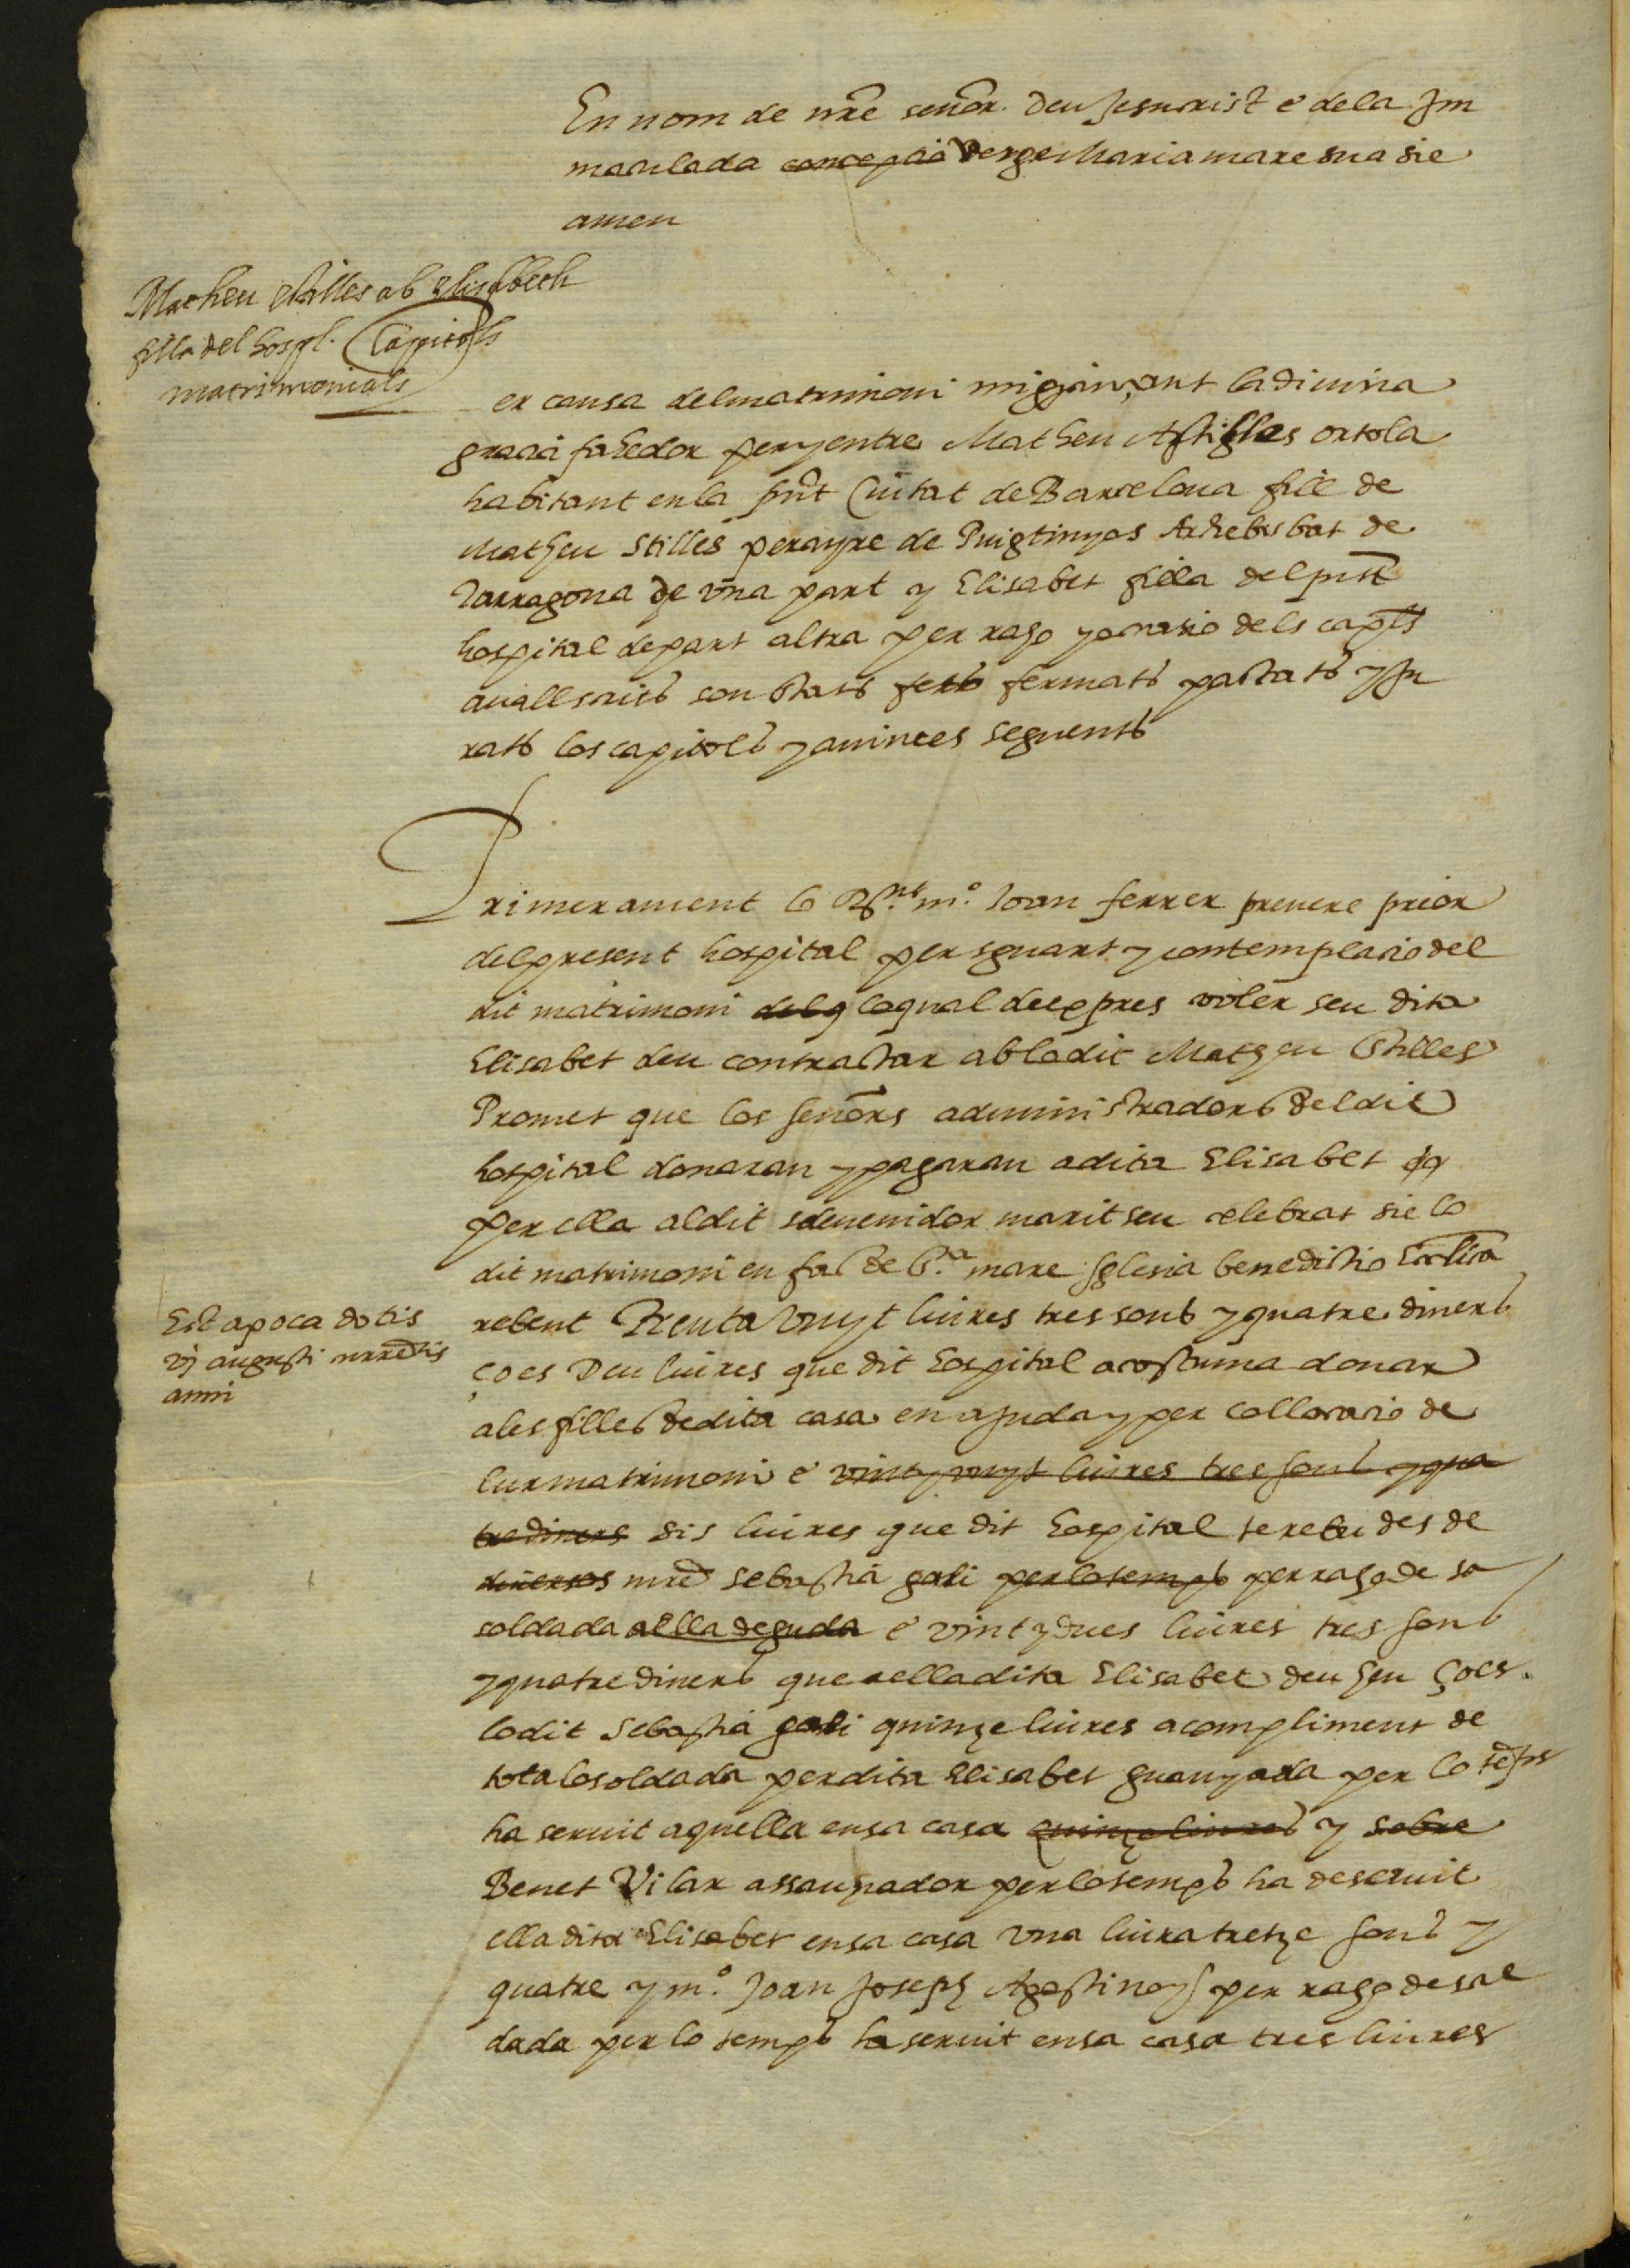 En nom de nr̃e señor Deu Jesucrist e de la Im
maculada conceptio Verge Maria mare sua sie
amen
Matheu Astilles ab Elisabeth
filla del hospl. Capitols
matrimonials
er causa del matrimoni migançant la divina
gracia fahedor per y entre Matheu Astilles ortola
habitant en la pn̄t Ciutat de Barcelona fill de
Matheu Stilles perayre de Puigtinyos Archebisbat de
Tarragona de vna part y Elisabet filla del pn̄t
hospital de part altra per raho y occasio dels capl̄s
avall scrits son stats fets fermats pactats y ju
rats los capitols y avinces seguents
Primerament lo Rt. mº. Joan ferrer prevere prior
del present hospital per sguart y contemplacio del
dit matrimoni del q loqual de expres voler seu dita
Elisabet deu contractar ab lo dit Matheu Stilles
Promet que los señors administradors del dit
hospital donaran y pagaran a dita Elisabet qq
per ella al dit sdevenidor marit seu celebrat sie lo
dit matrimoni en fas de S.ta mare Iglesia benedictio
rebent Trenta vuyt liures tres sous y quatre diners
Est apoca dotis
vj augusti
anni
ço es Deu liures que dit hospital acostuma donar
a les filles de dita casa en ajuda y per collocacio de
lur matrimoni e vint y vuyt liures tres sous y qua
tre diners sis liures que dit hospital te rebudes de
diversos mr̃e Sebastia gali per lo temps per raho de sa
soldada a ella deguda e vint y dues liures tres sous
y quatre diners que a ella dita Elisabet deu seu ço es
lo dit Sebastia gali quinze liures a compliment de
tota la soldada per dita Elisabet guanyada per lo temps
ha servit aquella en sa casa quinze liures y sobre
Benet Vilar assaunador per lo temps ha de servit
ella dita Elisabet en sa casa vna liura tretze sous y
quatre y mº. Joan Joseph Agostinoys per raho de sal
dada per lo temps ha servit en sa casa tres liures